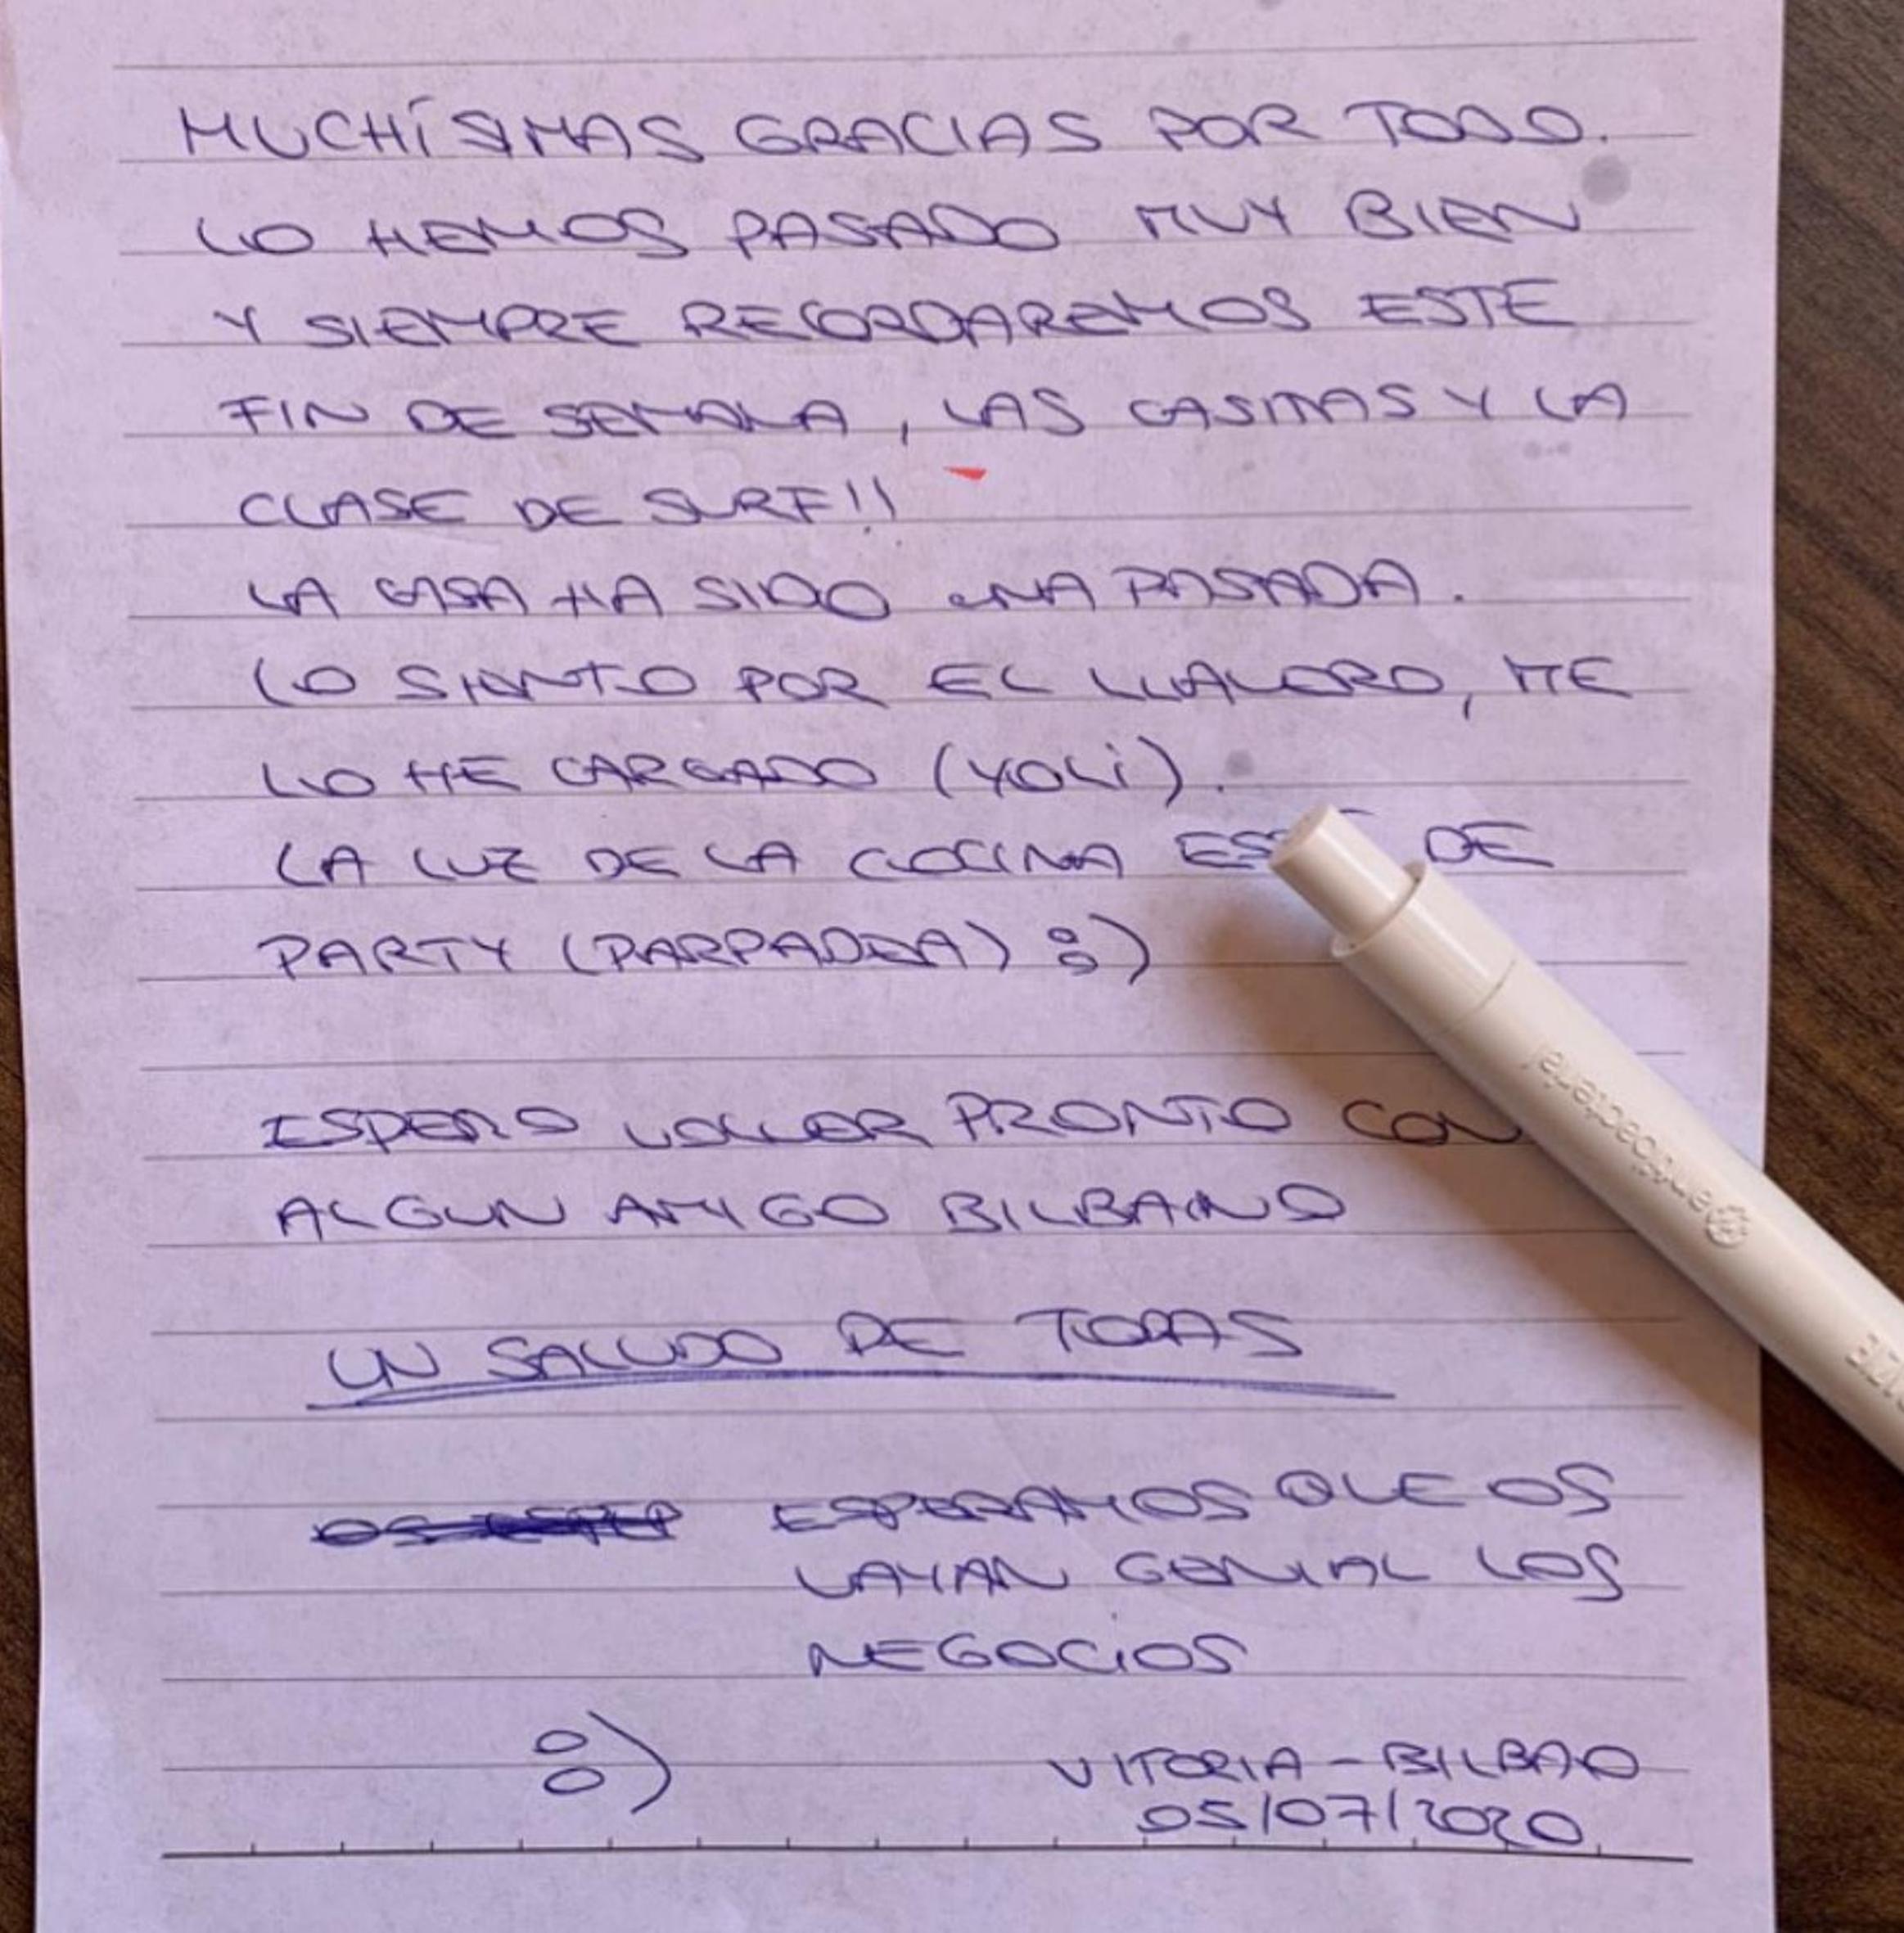 MUCHÍSIMAS GRACIAS POR TODO.
LO HEMOS PASADO MUY BIEN
Y SIEMPRE RECORDAREMOS ESTE
FIN DE SEMANA, LAS CASITAS Y LA
CLASE DE SURF!!
LA CASA HA SIDO UNA PASADA.
LO SIENTO POR EL LLAVERO, ME
LO HE CARGADO (YOLi).
LA LUZ DE LA COCINA DE
PARTY (PARPADEA) :)
ESPERO VOLVER PRONTO CON
ALGUN AMIGO BILBAINO
UN SALUDO DE TODAS
ESPERAMOS QUE OS
VAYAN GENIAL LOS
NEGOCIOS
:)
VITORIA - BILBAO
05/07/2020
antibacterial